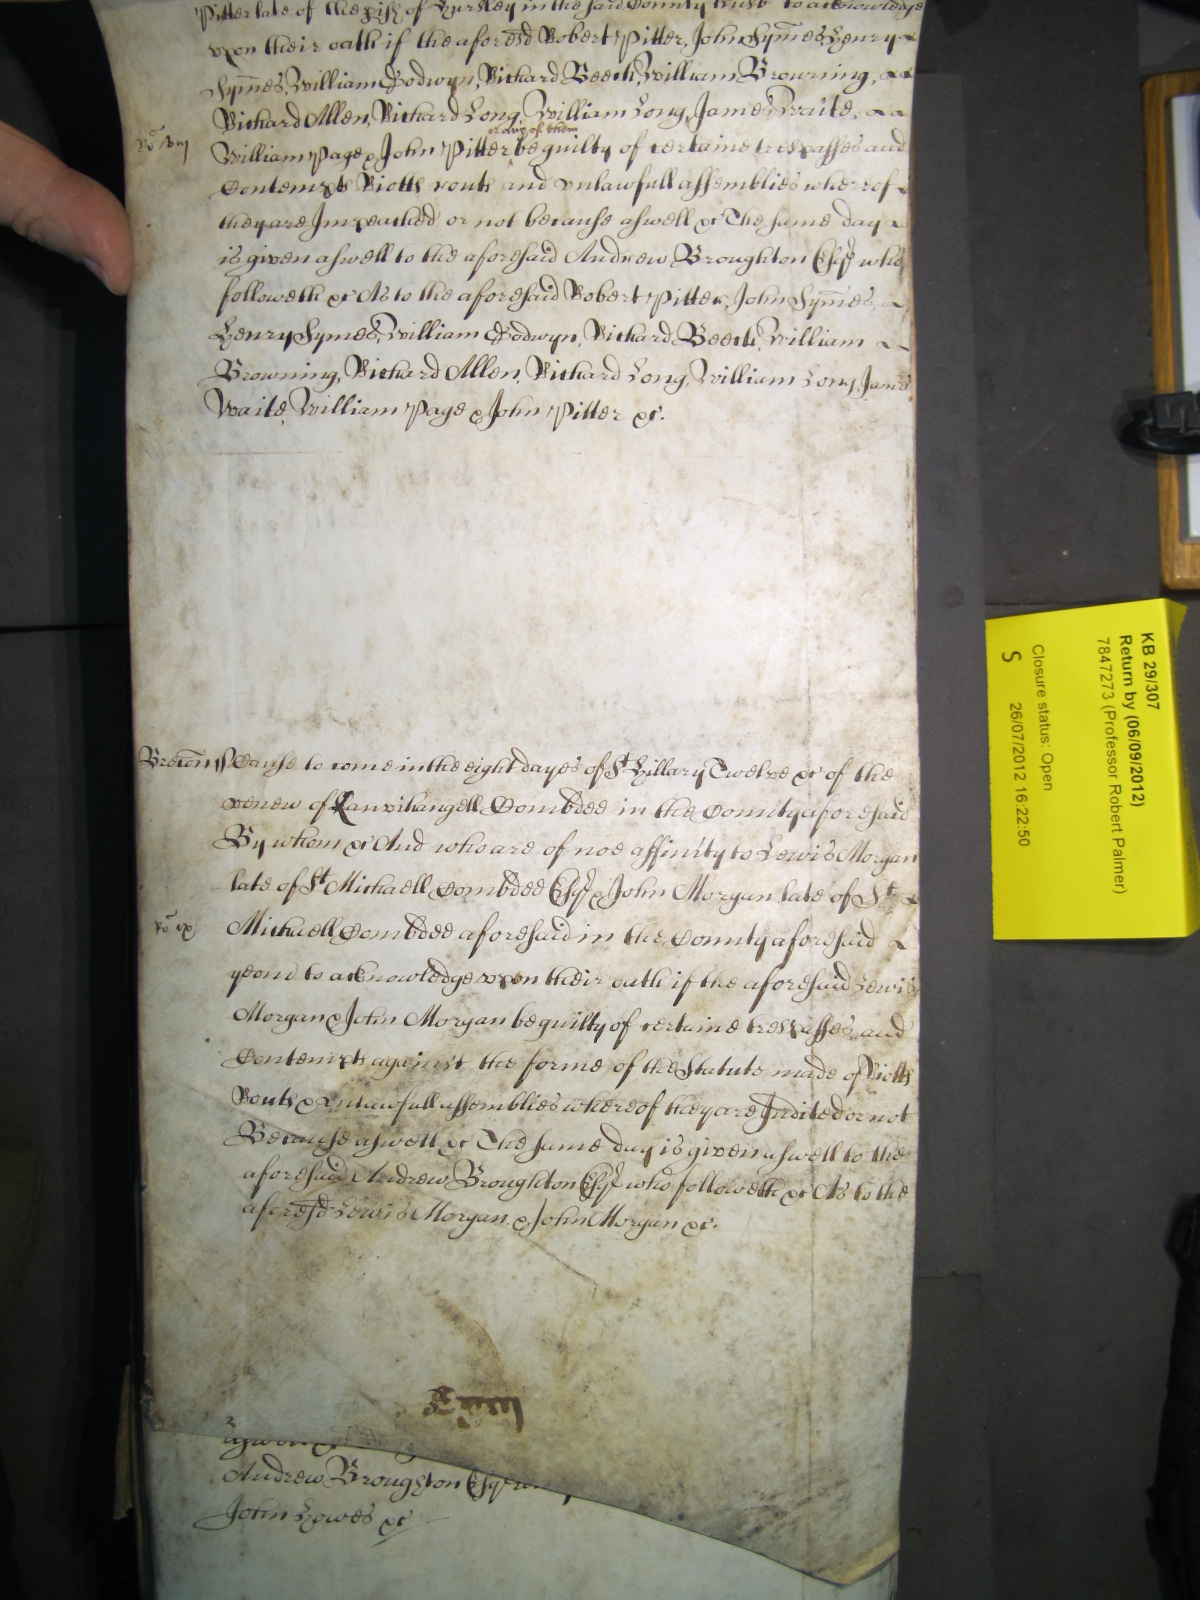 Pitter late of the pish of Hursley in the said County husb to acknowledge
vpon their oath if the aforesd Robert Pitter, John Symes, Henry
Symes, William Godwyn, Richard Beech, William Browning,
Richard Allen, Richard Long, William Long, James Waite,
or any of them
William Page & John Pitter be guilty of certaine trespasses and
Contempts Riotts routs and vnlawfull assemblies whereof
they are Impeached or not because aswell &c The same day
is given aswell to the aforesaid Andrew Broughton Esqr who
followeth &c As to the aforesaid Robert Pitter, John Symes,
Henry Symes, William Godwyn, Richard Beech, William
Browning, Richard Allen, Richard Long, William Long, James
Waite, William Page & John Pitter &c.
Cause to come in the eight dayes of St Hillary Twelve &c of the
venew of Lanvihangell Combdee in the County aforesaid
By whom &c And who are of noe affinity to Lewis Morgan
late of St Michaell Combdee Esqr & John Morgan late of St
Ro ix
Michaell Combdee aforesaid in the County aforesaid
yeom to acknowledge vpon their oath if the aforesaid Lewis
Morgan & John Morgan be guilty of certaine trespasses and
Contempts against the forme of the Statute made of Riotts
Routs & vnlawfull assemblies whereof they are Indited or not
Because aswell &c The same day is given aswell to the
aforesaid Andrew Broughton Esqr who followeth &c As to the
aforesd Lewis Morgan & John Morgan &c.
aswell &c
Andrew Broughton Esqr
John Howes &c
KB 29/307
Return by (06/09/2012)
7847273 (Professor Robert Palmer)
Closure status: Open
S 26/07/2012 16:22:50